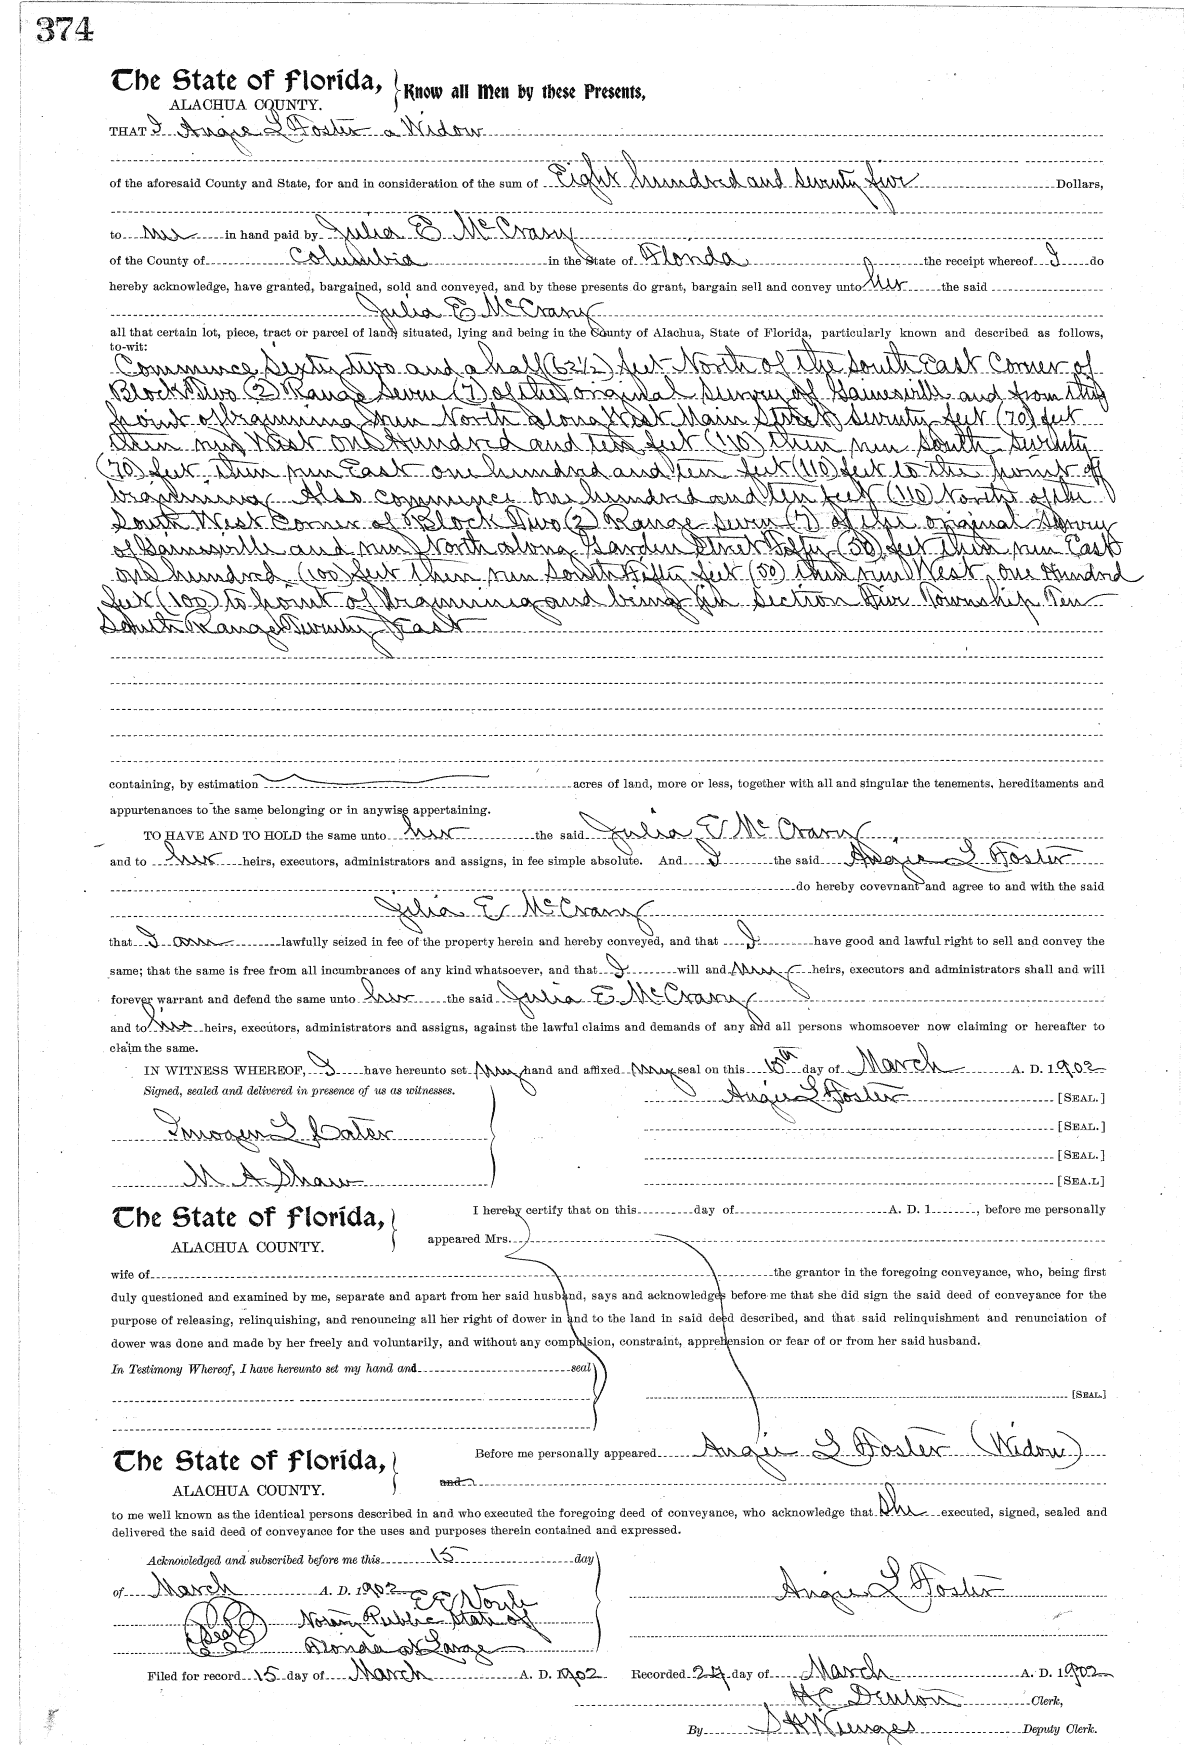 374
The State of Florida, Know all Men by these Presents,
ALACHUA COUNTY.
THAT I Angie L Foster a Widow
of the aforesaid County and State, for and in consideration of the sum of Eight hundred and seventy five Dollars,
to me in hand paid by Julia E McCrary
of the County of Columbia in the State of Florida the receipt whereof I do
hereby acknowledge, have granted, bargained, sold and conveyed, and by these presents do grant, bargain sell and convey unto her the said
Julia E McCrary
all that certain lot, piece, tract or parcel of land situated, lying and being in the County of Alachua, State of Florida, particularly known and described as follows,
to-wit:
Commence Sixty two and a half (62½) feet North of the South East Corner of
Block Two (2) Range Seven (7) of the original Survey of Gainesville and from this
point of beginning run North along West Main Street seventy feet (70) feet
then run West one Hundred and ten feet (110) then run South Seventy
(70) feet then run East one hundred and ten feet (110) feet to the point of
beginning Also commence one hundred and ten feet (110) North of the
South West Corner of Block Two (2) Range Seven (7) of the original Survey
of Gainesville and run North along Garden Street Fifty (50) feet then run East
one hundred (100) feet then run South Fifty feet (50) then run West one Hundred
feet (100) to point of beginning and being in Section Five Township Ten
South Range Twenty East
containing, by estimation acres of land, more or less, together with all and singular the tenements, hereditaments and
appurtenances to the same belonging or in anywise appertaining.
TO HAVE AND TO HOLD the same unto her the said Julia E McCrary
and to her heirs, executors, administrators and assigns, in fee simple absolute. And I the said Angie L Foster
do hereby covevnant and agree to and with the said
Julia E McCrary
that I am lawfully seized in fee of the property herein and hereby conveyed, and that I have good and lawful right to sell and convey the
same; that the same is free from all incumbrances of any kind whatsoever, and that I will and my heirs, executors and administrators shall and will
forever warrant and defend the same unto her the said Julia E McCrary
and to her heirs, executors, administrators and assigns, against the lawful claims and demands of any and all persons whomsoever now claiming or hereafter to
claim the same.
IN WITNESS WHEREOF, I have hereunto set my hand and affixed my seal on this 15th day of March A. D. 1902
Signed, sealed and delivered in presence of us as witnesses. Angie L Foster [SEAL.]
Imogen L Cater [SEAL.]
[SEAL.]
M A Shaw [SEA.L]
The State of Florida, I hereby certify that on this day of A. D. 1 , before me personally
ALACHUA COUNTY. appeared Mrs.
wife of the grantor in the foregoing conveyance, who, being first
duly questioned and examined by me, separate and apart from her said husband, says and acknowledges before me that she did sign the said deed of conveyance for the
purpose of releasing, relinquishing, and renouncing all her right of dower in and to the land in said deed described, and that said relinquishment and renunciation of
dower was done and made by her freely and voluntarily, and without any compulsion, constraint, apprehension or fear of or from her said husband.
In Testimony Whereof, I have hereunto set my hand and seal
[SEAL.]
The State of Florida, Before me personally appeared Angie L Foster (Widow)
ALACHUA COUNTY. and
to me well known as the identical persons described in and who executed the foregoing deed of conveyance, who acknowledge that She executed, signed, sealed and
delivered the said deed of conveyance for the uses and purposes therein contained and expressed.
Acknowledged and subscribed before me this 15 day
of March A. D. 1902 Angie L Foster
E E Voyle
Seal Notary Public State of
Florida at Large
Filed for record 15 day of March A. D. 1902 Recorded 24 day of March A. D. 1902
H C Denton Clerk,
By S H Wienges Deputy Clerk.